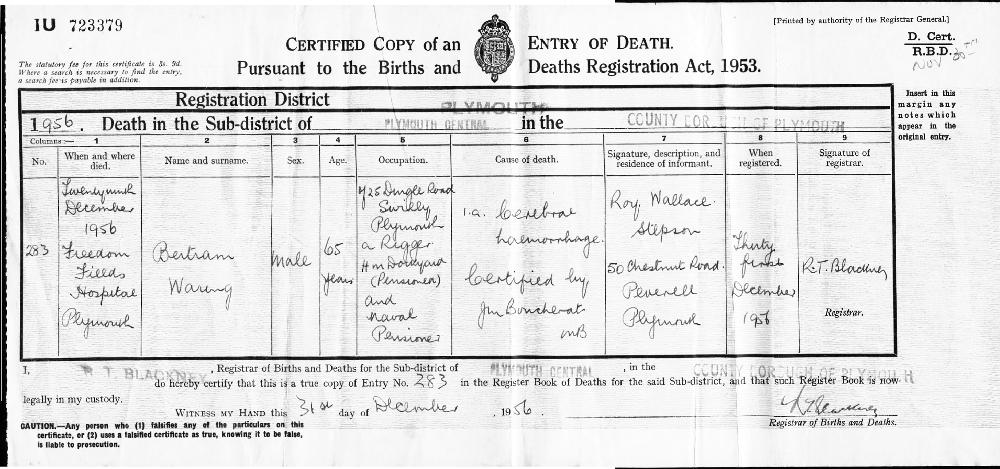 IU 723379
[Printed by authority of the Registrar General.]
CERTIFIED COPY of an ENTRY OF DEATH.
Pursuant to the Births and Deaths Registration Act, 1953.
D. Cert.
R.B.D.
NOV
The statutory fee for this certificate is 3s. 9d.
Where a search is necessary to find the entry,
a search fee is payable in addition.
Insert in this
margin any
notes which
appear in the
original entry.
Registration District PLYMOUTH
1956. Death in the Sub-district of PLYMOUTH CENTRAL in the COUNTY BOROUGH OF PLYMOUTH
Columns :— 1 2 3 4 5 6 7 8 9
No. When and where died. Name and surname. Sex. Age. Occupation. Cause of death. Signature, description, and residence of informant. When registered. Signature of registrar.
283
Twentyninth
December
1956
Freedom
Fields
Hospital
Plymouth
Bertram
Waring
Male
65
years
25 Dingle Road
Swilly
Plymouth
a Rigger
H M Dockyard
(Pensioner)
and
Naval
Pensioner
1.a. Cerebral
haemorrhage.
Certified by
MB
Roy. Wallace.
Stepson
50 Chestnut Road.
Peverell
Plymouth
Thirty
first
December
1956
R.T. Blackney
Registrar.
I, R T. BLACKNEY, Registrar of Births and Deaths for the Sub-district of PLYMOUTH CENTRAL, in the COUNTY BOROUGH OF PLYMOUTH
do hereby certify that this is a true copy of Entry No. 283 in the Register Book of Deaths for the said Sub-district, and that such Register Book is now
legally in my custody.
WITNESS MY HAND this 31st day of December, 1956.
CAUTION.—Any person who (1) falsifies any of the particulars on this
certificate, or (2) uses a falsified certificate as true, knowing it to be false,
is liable to prosecution.
R T Blackney
Registrar of Births and Deaths.